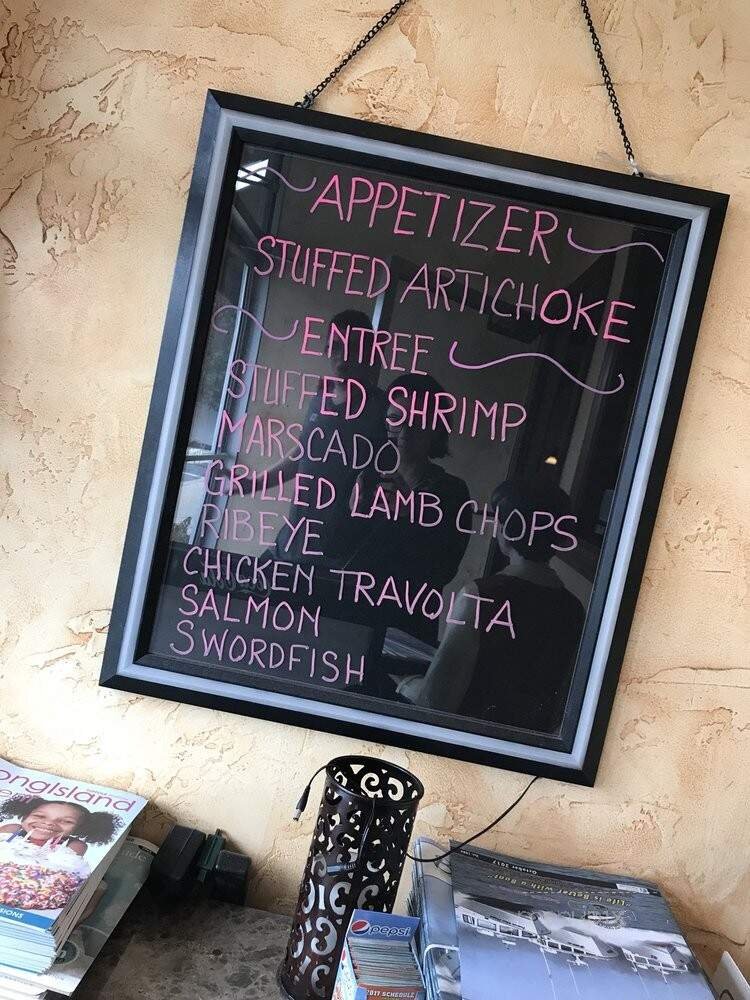 APPETIZER
STUFFED ARTICHOKE
ENTREE
STUFFED SHRIMP
MARSCADO
GRILLED LAMB CHOPS
RIBEYE
CHICKEN TRAVOLTA
SALMON
SWORDFISH
ongIsland
pepsi
2017 SCHEDULE
October 2017
"Life is Better With a Boat"